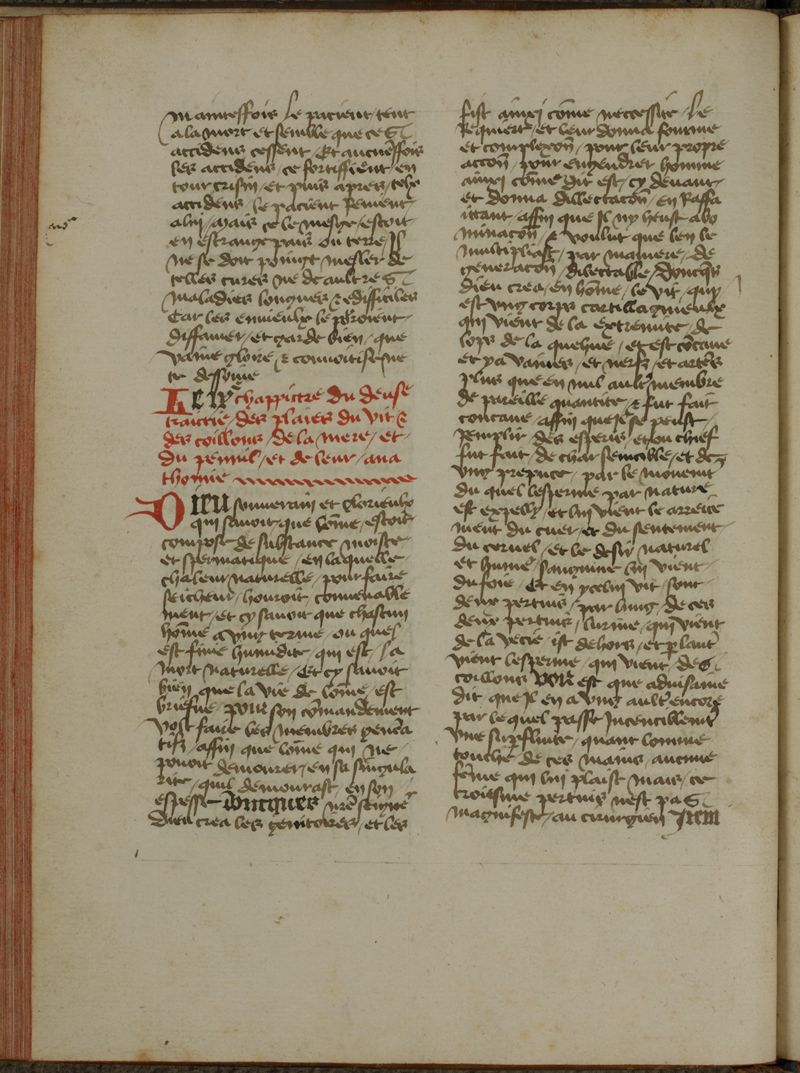 Maintesfois le pacient tent
a la mort et semble que ces
accidens cessent / Et aucũesfois
ses accidens / se fortiffient en
tour crisin / et puis apres / telz
accidens / le pacient
mais se le mesge / estoit
en estrange pais ou terre / Il
ne se doit poingt mesler de
telles cures ne de aultres
maladies longues & difficiles
Car les envieulx le
diffamer / et garde bien / que
vaine gloire / & convoitise / ne
te
chappittre du
traictie / des plaies du vit &
des coillons / de la mere / et
du penil / et de leur / ana
thomie
Dieu souverain et glorieulx
qui savoit que lõme / estoit
compost de substance moiste
et spermatique / en laquelle
chaleur naturelle / pour faire
convenable
ment / et cy savoit que chascun
hõme a ung terme / ou quel
est finie humidite / qui est / la
mort naturelle / Et cy savoit
bien que la vie de lõme / est
briefve pour son cõmandement
volt faire les membres genera
tifz / affin que lõme qui ne
povoit demourer / en sa singula
rite / quil demourast / en son
espesse Doncques nr̃e seignr̃
Dieu crea les genitoires / et les
fist ainsi cõme necessite / le
requiert / et leur donna fourme
et complexcoñ / pour leur propre
accoñ / pour engendrer homme
ainsi cõme dit est / cy devant
et donna dillectacoñ / en
affin que Il ny heust abo
minacoñ & voulut que len le
multipliast / par maniere / de
generacoñ / dilectable / Doncq̃s
dieu crea / en hõme / le vit / qui
est ung corps cartillagineulx
qui vient de la extremite / de
lops de la quehue / et est cõcave
et y a vaines / et nerfz / et arters
plus que en nul ault̃ membre
de pareille quantite / & fut fait
concave / affin que Il se peust
remplir des esperis / et ou chief
fut fait / de char sencible / et de
ung prepuce / par le movemt̃
du quel lesperme / par nature
est expelly / et lui vient le arreice
ment du cuer / et du sentement
du cervel / et le desir naturel
et humẽ / sanguine lui vient
du foie / Et en ycelui vit / sont
deux pertuis / par lung / de ces
deux pertuis / lurine / qui vient
de la vecie / ist dehors / et p lautr̃
vient lesperme / qui vient / des
coillons Voir est que
dit que Il en a ung ault̃ encore
par le quel passe Incencillemt̃
une sup̃fluite / quant lomme
touche de ces mains / aucune
fẽme qui lui plaist mais / ce
troiesme pertuis nest pas
magnifeste / au cirurgien Item